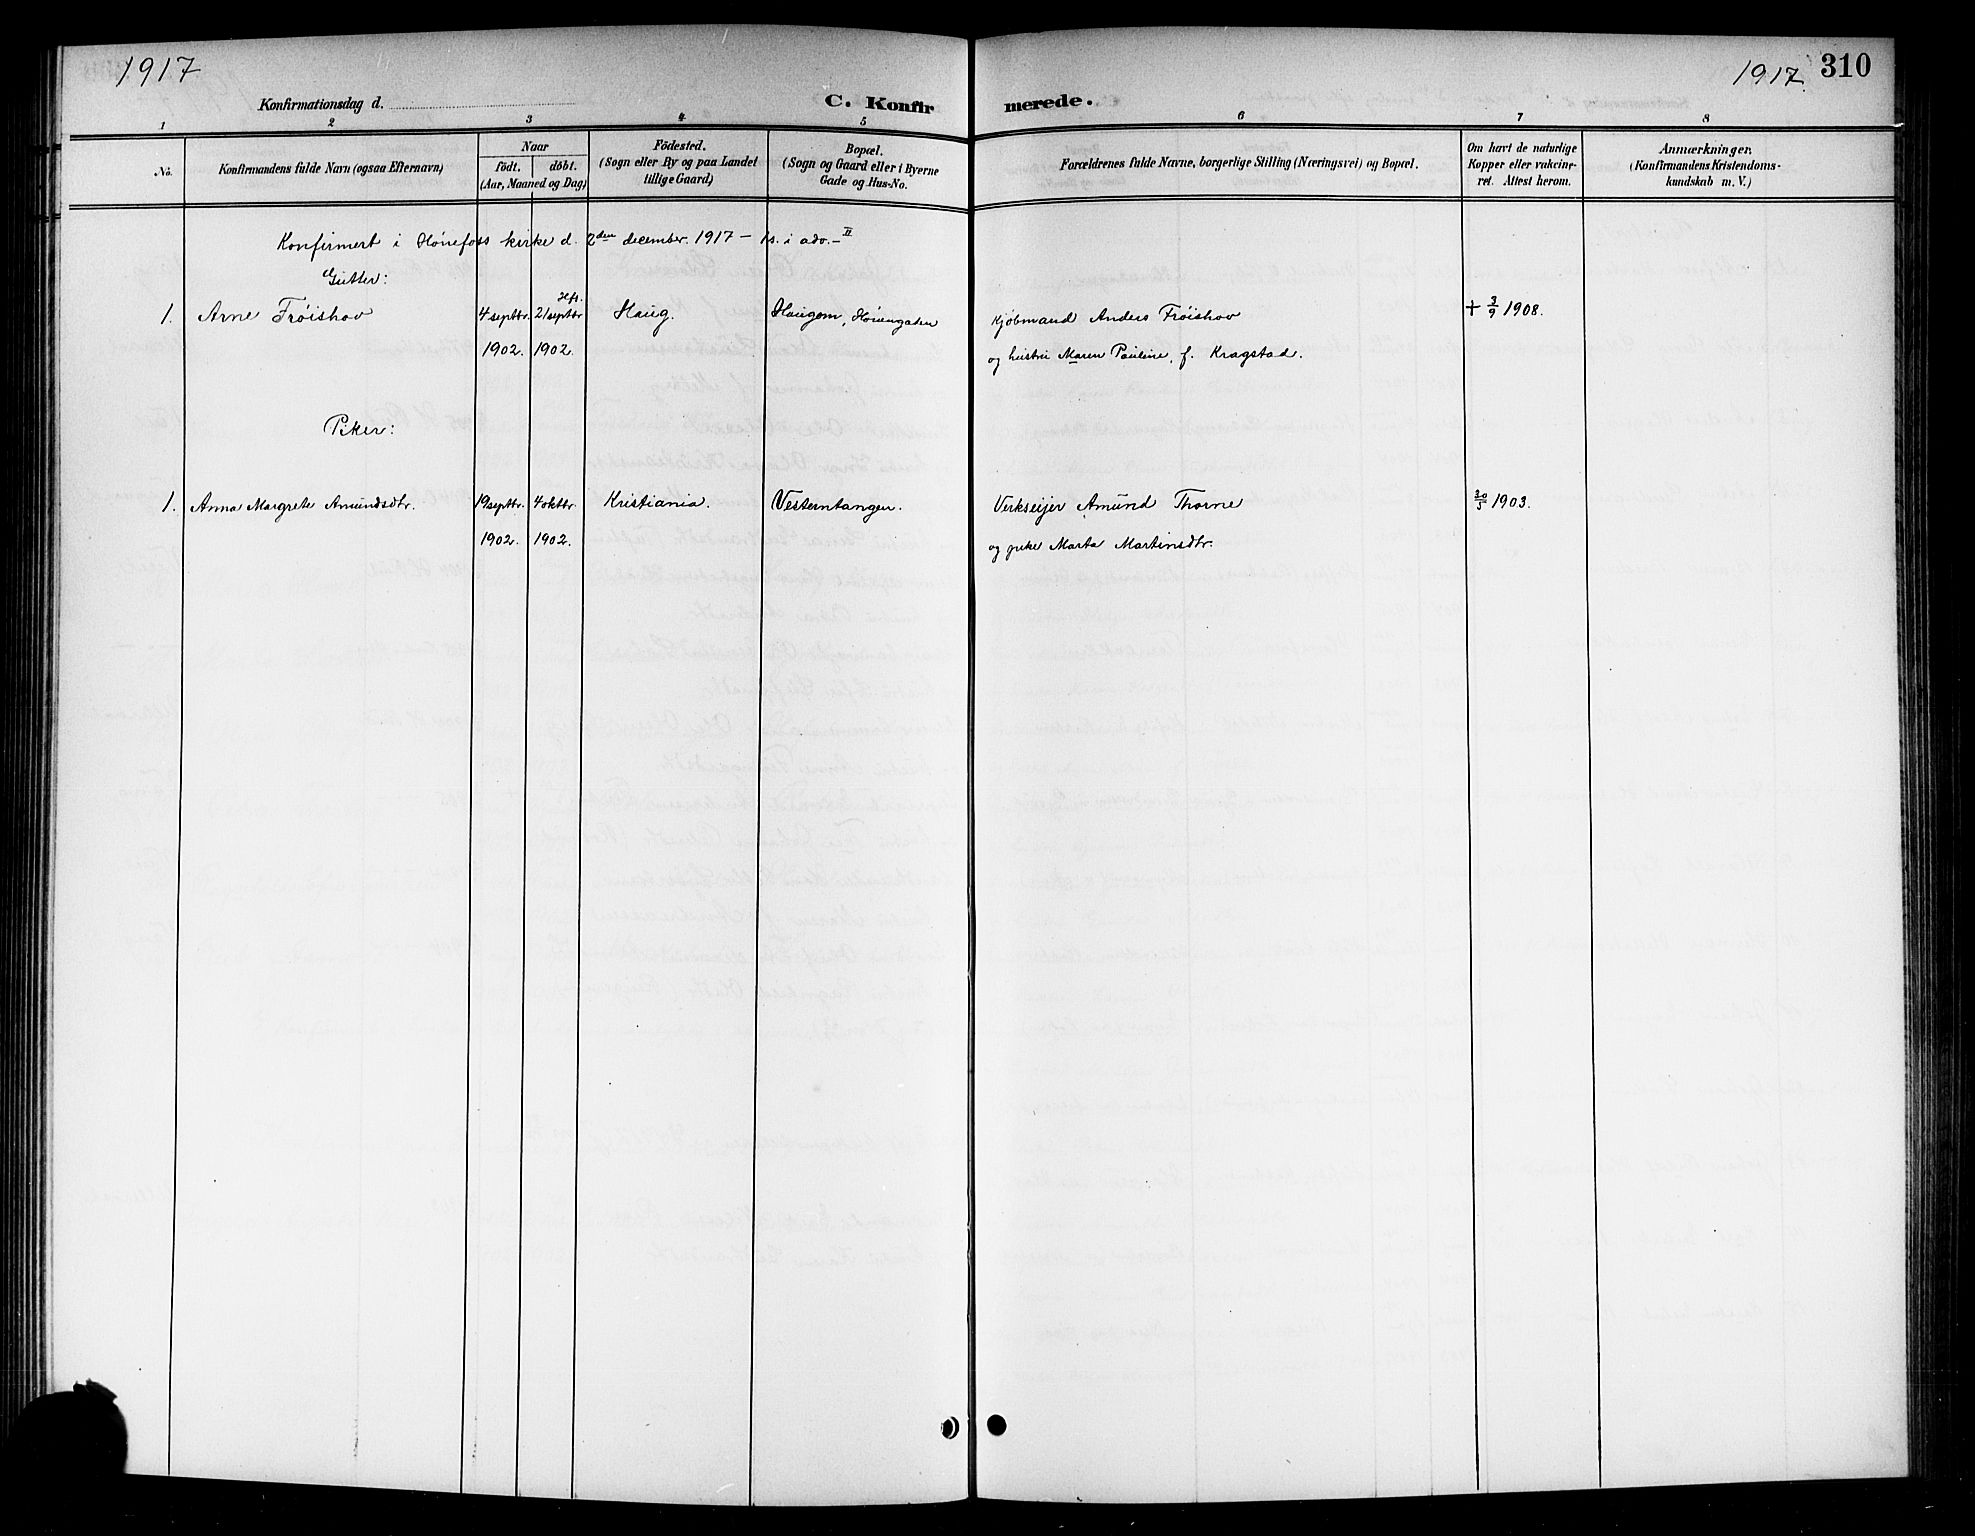 1917
1917. 310
Konfirmationsdag d.
C. Konfir
merede.
1 2 3 4 5 6 7 8
No.
Konfirmandens fulde Navn (ogsaa Efternavn)
Naar
født. døbt.
(Aar, Maaned og Dag)
Fødested.
(Sogn eller By og paa Landet
tillige Gaard)
Bopæl.
(Sogn og Gaard eller i Byerne
Gade og Hus-No.
Forældrenes fulde Navne, borgerlige Stilling (Næringsvei) og Bopæl.
Om havt de naturlige
Kopper eller vakcine-
ret. Attest herom.
Anmærkninger.
(Konfirmandens Kristendoms-
kundskab m. V.)
Konfirmert i Hønefoss kirke d. 2den december 1917 – 1s. i adv. – II
Gutter:
Hfs.
1. Arne Frøishov 4 septbr. 21 septbr Haug. Haugom, Hønengaten Kjøbmand Anders Frøishov + 3/9 1908.
1902. 1902. og hustru Maren Pauline, f. Kragstad.
Piker:
1. Anna Margrete Amundsdtr. 19 septbr. 4 oktbr. Kristiania. Vesterntangen. Verkseijer Amund Thorne 30/5 1903.
1902. 1902. og pike Marta Martinsdtr.